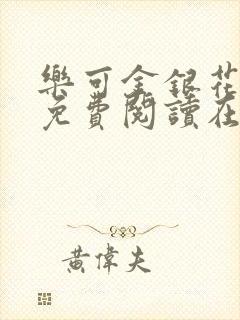 樂可金銀花
免費閱讀在
黃偉夫